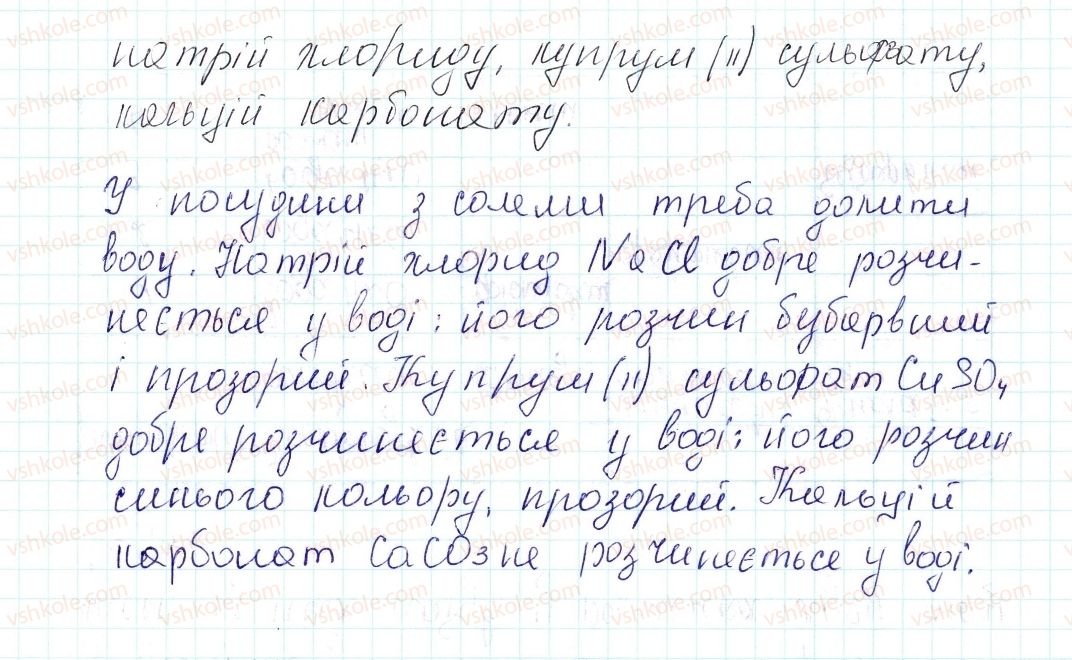 натрій хлориду, купрум (II) сульфату,
кальцій карбонату.
У посудини з солями треба долити
воду. Натрій хлорид NaCl добре розчи-
няється у воді: його розчин бубарвний
і прозорий. Купрум (II) сульфат CuSO4
добре розчиняється у воді: його розчин
синього кольору, прозорий. Кальцій
карбонат CaCO3 не розчиняється у воді.